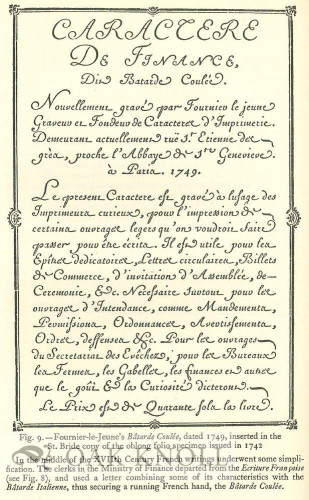 CARACTERE
DE FINANCE,
Dit Batarde Coulée.
Nouvellement gravé par Fournier le jeune
Graveur et Fondeur de Caracteres d'Imprimerie.
Demeurant actuellement ruë St. Etienne des
grès, proche l'Abbaye de Ste Genevieve.
à Paris. 1749.
Le present Caractere est gravé à lusage des
Imprimeurs curieux, pour l'impression de
certains ouvrages legers qu'on voudroit faire
passer pour être écrits. Il est utile pour les
Epîtres dedicatoires, Lettres circulaires, Billets
de Commerce, d'invitation d'Assemblée, de
Ceremonie, &c. Necessaire surtout pour les
ouvrages d'Intendance, comme Mandements,
Permissions, Ordonnances, Avertissements,
Ordres, deffenses &c. Pour les ouvrages
du Secretariat des Evêchés, pour les Bureaux
les Fermes, les Gabelles, les finances et autres
que le goût & la Curiosité dicterons.
Le Prix est de Quarante sols la livre.
Fig. 9.—Fournier-le-Jeune's Bâtarde Coulée, dated 1749, inserted in the
St. Bride copy of the oblong folio specimen issued in 1742
In the middle of the XVIIIth Century these writings underwent some simpli-
fication. The clerks in the Ministry of Finance departed from the Ecriture Française
(see Fig. 8), and used a letter combining some of its characteristics with the
Bâtarde Italienne, thus securing a running French hand, the Bâtarde Coulée.